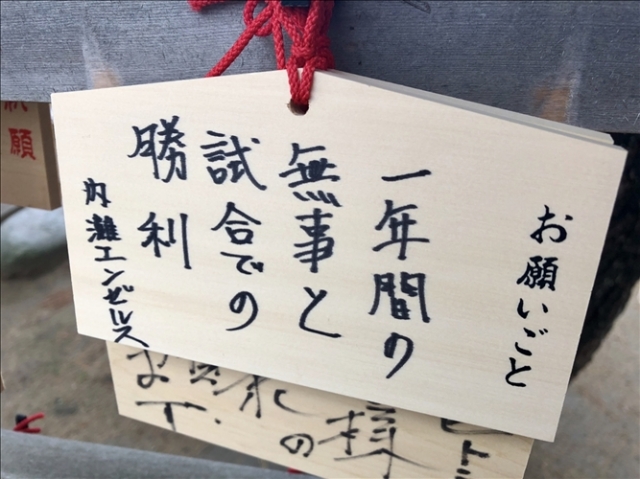 お願いごと
一年間の
無事と
試合での
勝利
内灘エンゼルス
願
の
様